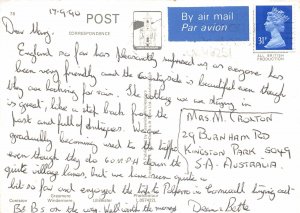 17-9-90
POST
By air mail
Par avion
31
BRITISH
PRODUCTION
CORRESPONDENCE
Dear Mary,
England so far has pleasantly surprised us as everyone has
been very friendly and the countryside is beautiful even though
they are looking for rain. The cottage we are staying in
is great, like a step back from the
past and full of antiques. Wayne
gradually becoming used to the traffic
even though they do 60 M.P.H. down the
quite village lanes, but we have seen quite a
bit so far and enjoyed the trip to Polperro in Cornwall trying out
B&B's on the way. Well worth the money
MRS M. CROXTON
29 BURNHAM RD
KINGSTON PARK 5049
S.A. AUSTRALIA.